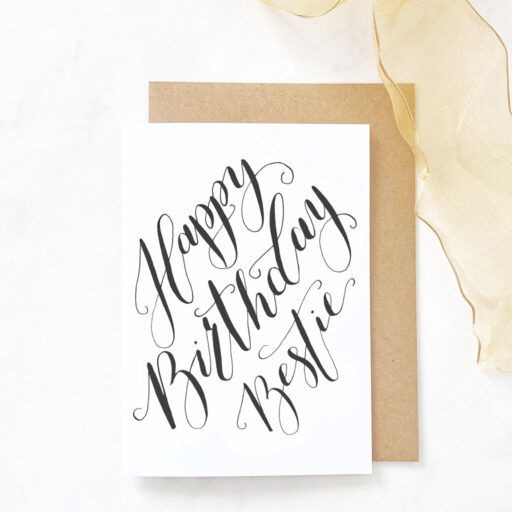 Happy
Birthday
Bestie